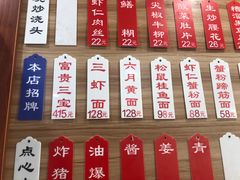 炒浇头
虾仁肉丝
22元
鳝糊
22元
尖椒牛柳
22元
酸菜肚片
22元
生炒腰花
28元
本店招牌
富贵三宝
415元
三虾面
128元
六月黄面
128元
松鼠桂鱼面
98元
虾仁蟹粉面
58元
蟹粉蹄筋面
58元
点心
炸猪
油爆
酱
姜
青